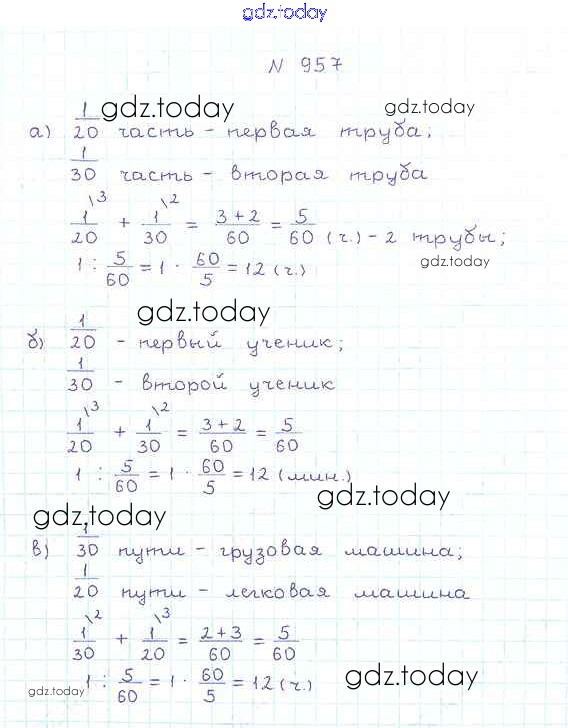 gdz.today
N 957
gdz.today gdz.today
а) 1/20 часть - первая труба;
1/30 часть - вторая труба
1/20 \3 + 1/30 \2 = 3+2/60 = 5/60 (ч.) - 2 трубы;
gdz.today
1 : 5/60 = 1 · 60/5 = 12 (ч.)
gdz.today
б) 1/20 - первый ученик;
1/30 - второй ученик
1/20 \3 + 1/30 \2 = 3+2/60 = 5/60
1 : 5/60 = 1 · 60/5 = 12 (мин.)
gdz.today
gdz.today
в) 1/30 пути - грузовая машина;
1/20 пути - легковая машина
1/30 \2 + 1/20 \3 = 2+3/60 = 5/60
1 : 5/60 = 1 · 60/5 = 12 (ч.)
gdz.today
gdz.today